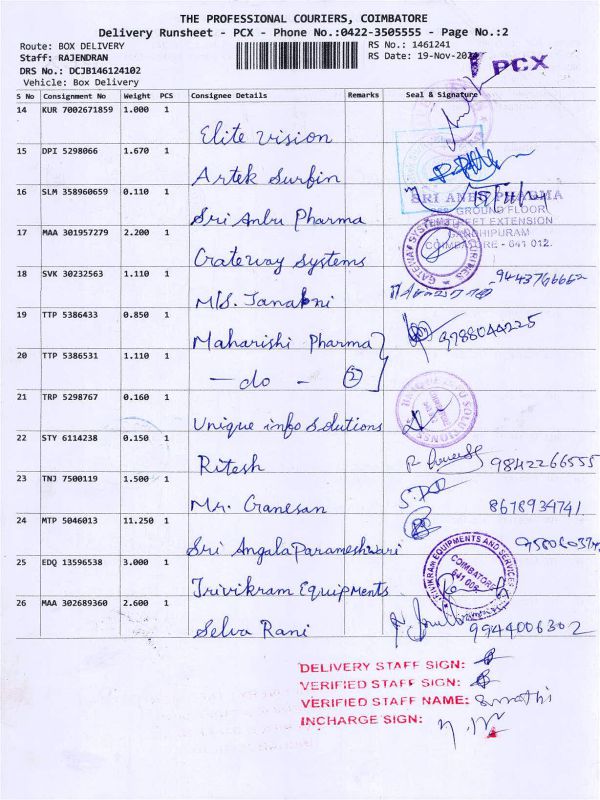 THE PROFESSIONAL COURIERS, COIMBATORE
Delivery Runsheet - PCX - Phone No.:0422-3505555 - Page No.:2
Route: BOX DELIVERY
RS No.: 1461241
Staff: RAJENDRAN
RS Date: 19-Nov-2024
DRS No.: DCJB146124102
Vehicle: Box Delivery
PCX
S No Consignment No Weight PCS Consignee Details Remarks Seal & Signature
14 KUR 7002671859 1.000 1
Elite vision
15 DPI 5298066 1.670 1
Artek Surfin
16 SLM 358960659 0.110 1
Sri Anbu Pharma
SRI ANBU PHARMA
GROUND FLOOR
STREET EXTENSION
GANDHIPURAM
COIMBATORE - 641 012.
17 MAA 301957279 2.200 1
Gateway Systems
18 SVK 30232563 1.110 1
M/S. Janakni
19 TTP 5386433 0.850 1
Maharishi Pharma
9788044225
20 TTP 5386531 1.110 1
— do — 2
21 TRP 5298767 0.160 1
Unique info Solutions
22 STY 6114238 0.150 1
Ritesh
9842266555
23 TNJ 7500119 1.500 1
Mr. Ganesan
8678934741
24 MTP 5046013 11.250 1
Sri Angala Parameshwari
25 EDQ 13596538 3.000 1
Trivikram Equipments
TRIVIKRAM EQUIPMENTS AND SERVICES
COIMBATORE
26 MAA 302689360 2.600 1
Selva Rani
9944006302
DELIVERY STAFF SIGN:
VERIFIED STAFF SIGN:
VERIFIED STAFF NAME: Sumathi
INCHARGE SIGN: